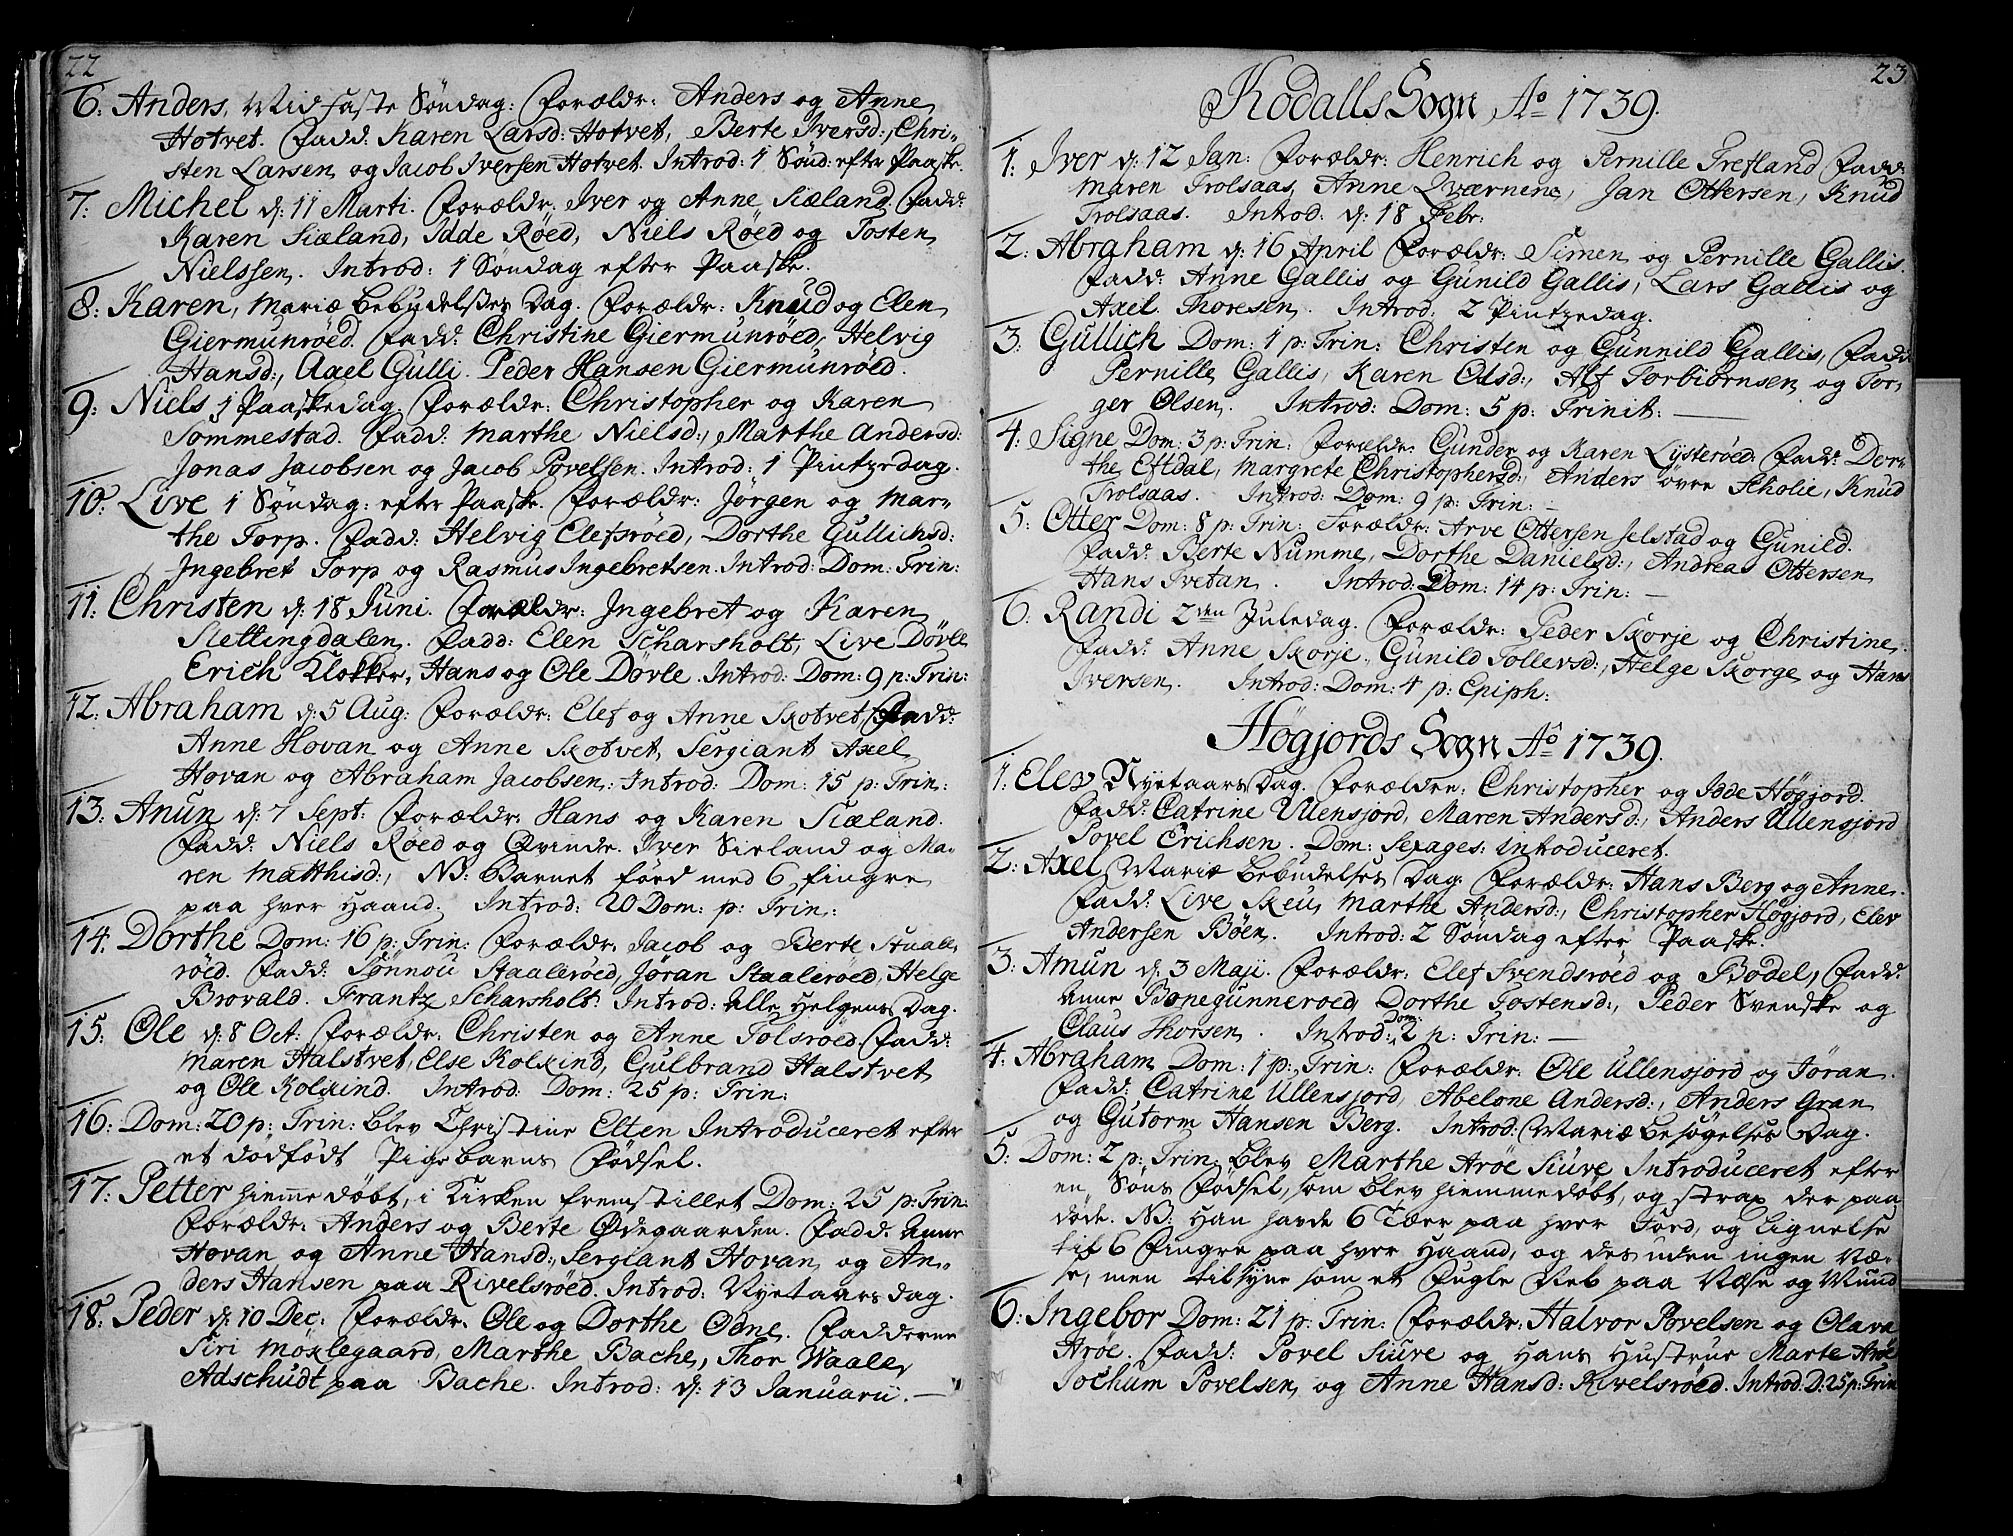 22
6: Anders, Midfaste Söndag: Forældr: Anders og Anne
Hotvet. Fadd: Karen Larsd: Hotvet, Berte Iversd:, Chri-
sten Larsen, og Jacob Iversen Hotvet. Introd: 1 Sönd: efter Paaske.
7: Michel d: 11 Marti. Forældr: Iver og Anne Siæland, Fadd:
Karen Siæland, Idde Röed, Niels Röed og Tosten
Nielssen. Introd: 1 Söndag efter Paaske.
8: Karen, Mariæ bebudelses Dag. Forældr: Knud og Elen
Giermunröed. Fadd: Christine Giermunröed, Helvig
Hansd:, Axel Gulli. Peder Hansen Giermunröed.
9: Niels 1 Paaskedag Forældr: Christopher og Karen
Sommestad. Fadd: Marthe Nielsd:, Marthe Andersd:
Jonas Jacobsen og Jacob Povelsen. Introd: 1 Pintzedag.
10: Live 1 Söndag: efter Paaske. Forældr: Jörgen og Mar-
the Torp. Fadd: Helvig Elefsröed, Dorthe Gullichsd:
Ingebret Torp og Rasmus Ingebretsen. Introd: Dom: Trin:
11: Christen d: 18 Juni. Forældr: Ingebret og Karen
Slettingdalen. Fadd: Elen Scharsholt, Live Dövle
Erich Klokker, Hans og Ole Dövle. Introd: Dom: 9 p: Trin:
12: Abraham d: 5 Aug: Forældr: Elef og Anne Skotvet, Fadd:
Anne Hovan og Anne Skotvet, Sergiant Axel
Hovan og Abraham Jacobsen. Introd: Dom: 15 p: Trin:
13: Anun d: 7 Sept: Forældr: Hans og Karen Siæland.
Fadd: Niels Röed og Qvinde. Iver Sieland og Ma-
ren Matthisd:, NB: Barnet föed med 6 fingre
paa hver Haand. Introd: 20 Dom: p: Trin:
14: Dorthe Dom: 16 p: Trin: Forældr: Jacob og Berte Staale,
röed. Fadd: Sönnou Staaleröed, Jöran Staaleröed, Helge
Brovald. Frantz Scharsholt. Introd: Alle Helgens Dag.
15: Ole d: 8 Oct: Forældr: Christen og Anne Tolsröed. Fadd:
Maren Halstvet, Else Kolkind, Gulbrand Halstvet
og Ole Kolkind. Introd: Dom: 25 p: Trin:
16: Dom: 20 p: Trin: blev Christine Elten Introduceret efter
et dödfödt Pigebarns Födsel.
17: Petter hiemmedöbt, i Kirken fremstillet Dom: 25 p: Trin:
Forældr: Anders og Berte Ödegaarden. Fadd: Anne
Hovan og Anne Hansd:, Sergiant Hovan og An-
ders Hansen paa Rivelsröed. Introd: Nyetaarsdag.
18: Peder d: 10 Dec: Forældr: Ole og Dorthe Odne. Fadderne
Siri Möklegaard, Marthe Bache, Thor Waale,
Adschudt paa Bache. Introd: d: 13 Januarii.
23
Kodalls Sogn Ao 1739.
1: Iver d: 12 Jan: Forældr: Henrich og Pernille Trefland Fadd:
Maren Trolsaas, Anne Qværnene, Jan Ottersen, Knud
Trolsaas. Introd: d: 18 Febr:
2: Abraham d: 16 April Forældr: Simen og Pernille Gallis.
Fadd: Anne Gallis og Gunild Gallis, Lars Gallis og
Axel Thoresen. Introd: 2 Pintzedag.
3: Gullich Dom: 1 p: Trin: Christen og Gunnild Gallis, Fadd:
Pernille Gallis, Karen Olsd:, Alf Torbiörnsen og Tor-
ger Olsen. Introd: Dom: 5 p: Trinit:
4: Signe Dom: 3 p: Trin: Forældr: Gunder og Karen Lysteröed. Fadd: Dor-
the Eftdal, Margrete Christophersd:, Anders övre Scholie, Knud
Trolsaas. Introd: Dom: 9 p: Trin:
5: Otter Dom: 8 p: Trin: Forældr: Arve Ottersen Selstad og Gunild.
Fadd: Berte Numme, Dorthe Danielsd:, Andreas Ottersen
Hans Tvetan. Introd: Dom: 14 p: Trin:
6: Randi 2den Juledag. Forældr: Peder Skorje og Christine.
Fadd: Anne Skorje, Gunild Tollevsd:, Helge Skorge og Hans
Iversen. Introd: Dom: 4 p: Epiph:
Högjords Sogn Ao 1739.
1: Elev Nyetaars Dag. Forældre: Christopher og Idde Högjord.
Fadd: Catrine Ullensjord, Maren Andersd:, Anders Ullensjord
Povel Erichsen. Dom: Sexages: introduceret.
2: Axel Mariæ bebudelses Dag. Forældr: Hans Berg og Anne.
Fadd: Live Skeu, Marthe Andersd:, Christopher Högjord, Elev
Andersen Böen. Introd: 2 Söndag efter Paaske.
3: Amun d: 3 Maji. Forældr: Elef Svendsröed og Bodel, Fadd:
Anne Bonegunneroed, Dorthe Tostensd:, Peder Svenske og
Claus Thorsen. Introd: Dom: 2 p: Trin:
4: Abraham Dom: 1 p: Trin: Forældr: Ole Ullensjord og Jöran.
Fadd: Catrine Ullensjord, Abelone Andersd:, Anders Gran
og Gutorm Hansen Berg. Introd: Mariæ besögelses Dag.
5: Dom: 2 p: Trin: blev Marthe Aröe Siuve Introduceret efter
en Söns Födsel, som blev hiemmedöbt, og strax der paa
döde. NB: Han hafde 6 Tæer paa hver Foed, og Lignelse
til 6 Fingre paa hver Haand, og desuden ingen Næ-
se, men tilsyne som et Fugle Neb paa Næse og Mund
6: Ingebor Dom: 21 p: Trin: Forældr: Halvor Povelsen og Olava
Aröe. Fadd: Povel Siuve og Hans Hustrue Marte Aröe
Jochum Povelsen, og Anne Hansd: Rivelsröed. Introd: D: 25 p: Trin